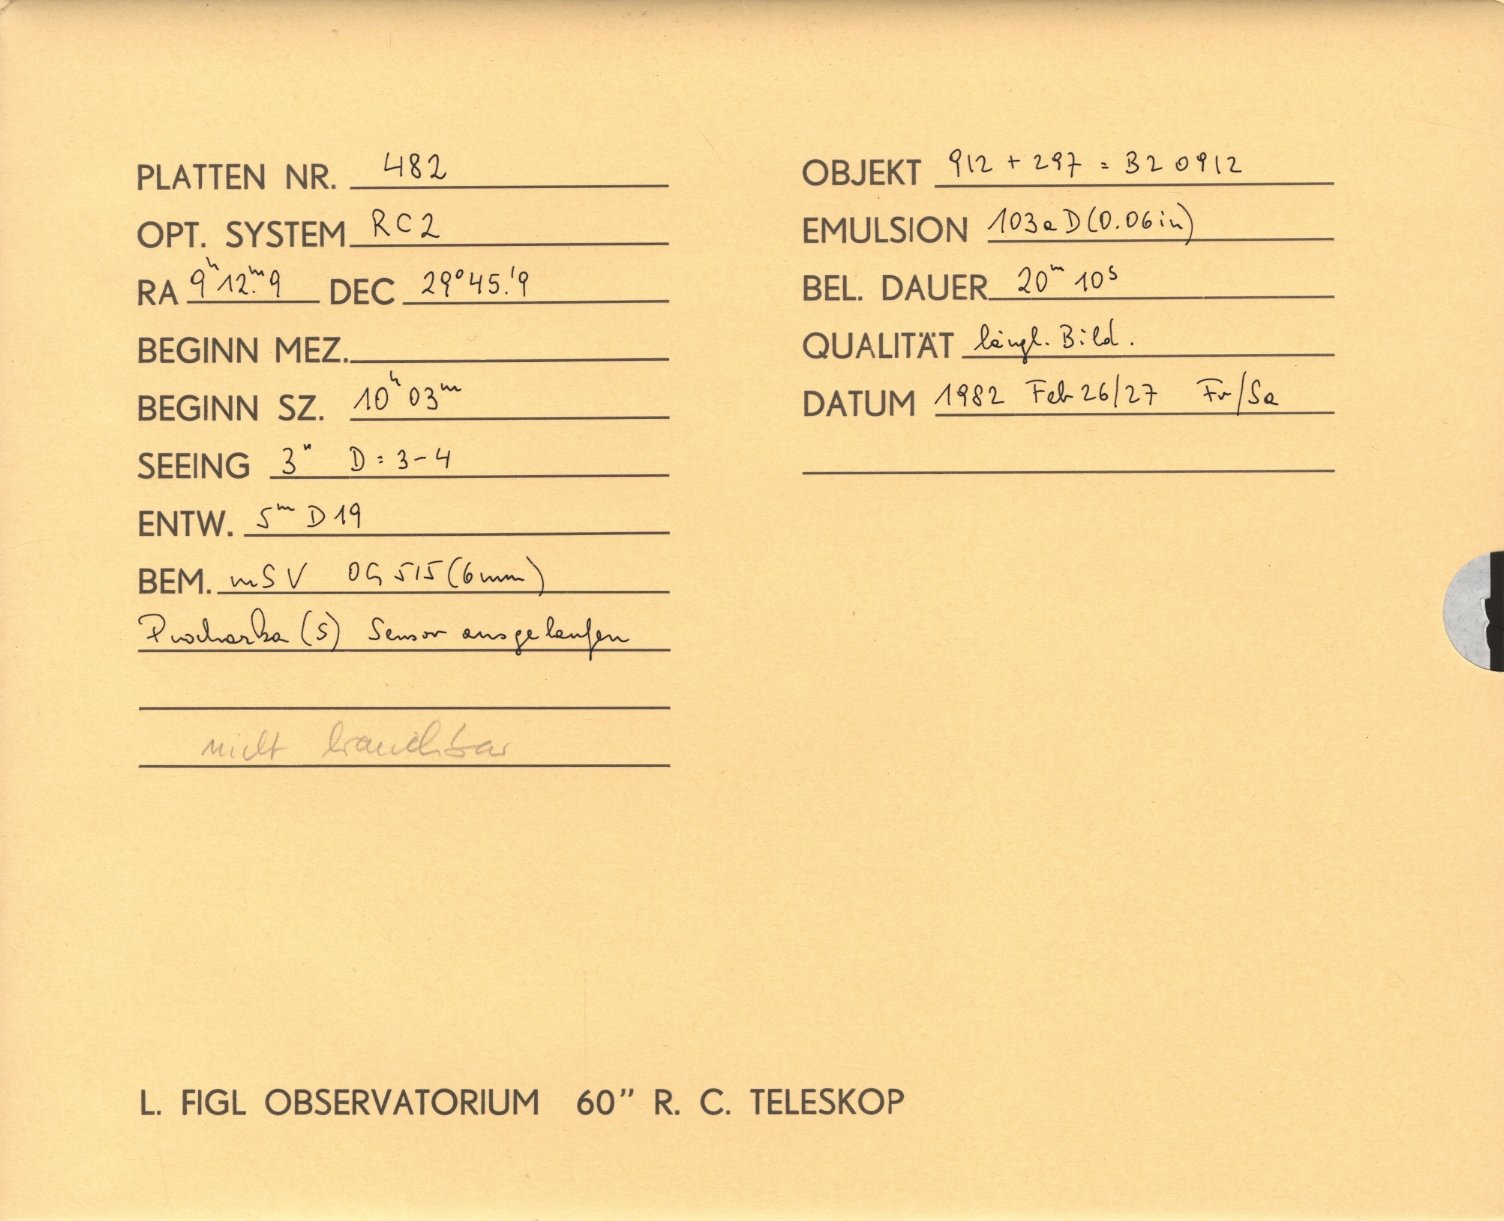 PLATTEN NR. 482
OPT. SYSTEM RC2
RA 9ʰ12.ᵐ9 DEC 29°45.'9
BEGINN MEZ.
BEGINN SZ. 10ʰ03ᵐ
SEEING 3" D = 3-4
ENTW. 5ᵐ D19
BEM. mSV OG 515 (6mm)
Prochazka (S) Sensor ausgelaufen
nicht brauchbar
OBJEKT 912 + 297 = B2 0912
EMULSION 103a D (0.06in)
BEL. DAUER 20ᵐ 10ˢ
QUALITÄT längl. Bild.
DATUM 1982 Feb 26/27 Fr/Sa
L. FIGL OBSERVATORIUM 60" R. C. TELESKOP